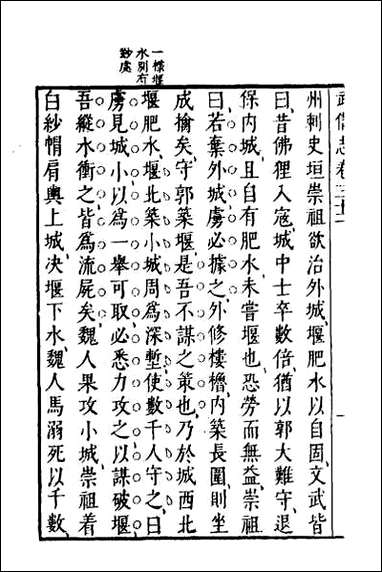 武備志卷三十一
州刺史垣崇祖欲治外城堰肥水以自固文武皆
曰昔佛狸入寇城中士卒數倍猶以郭大難守退
保内城且自有肥水未嘗堰也恐勞而無益崇祖
曰若棄外城虜必據之外修樓櫓内築長圍則坐
成擒矣守郭築堰是吾不諫之策也乃於城西北
堰肥水堰北築小城周爲深塹使數千人守之曰
虜見城小以爲一舉可取必悉力攻之以謀破堰
吾縱水衝之皆爲流屍矣魏人果攻小城崇祖着
白紗帽肩輿上城决堰下水魏人馬溺死以千數
一樣堰
水别有
妙處